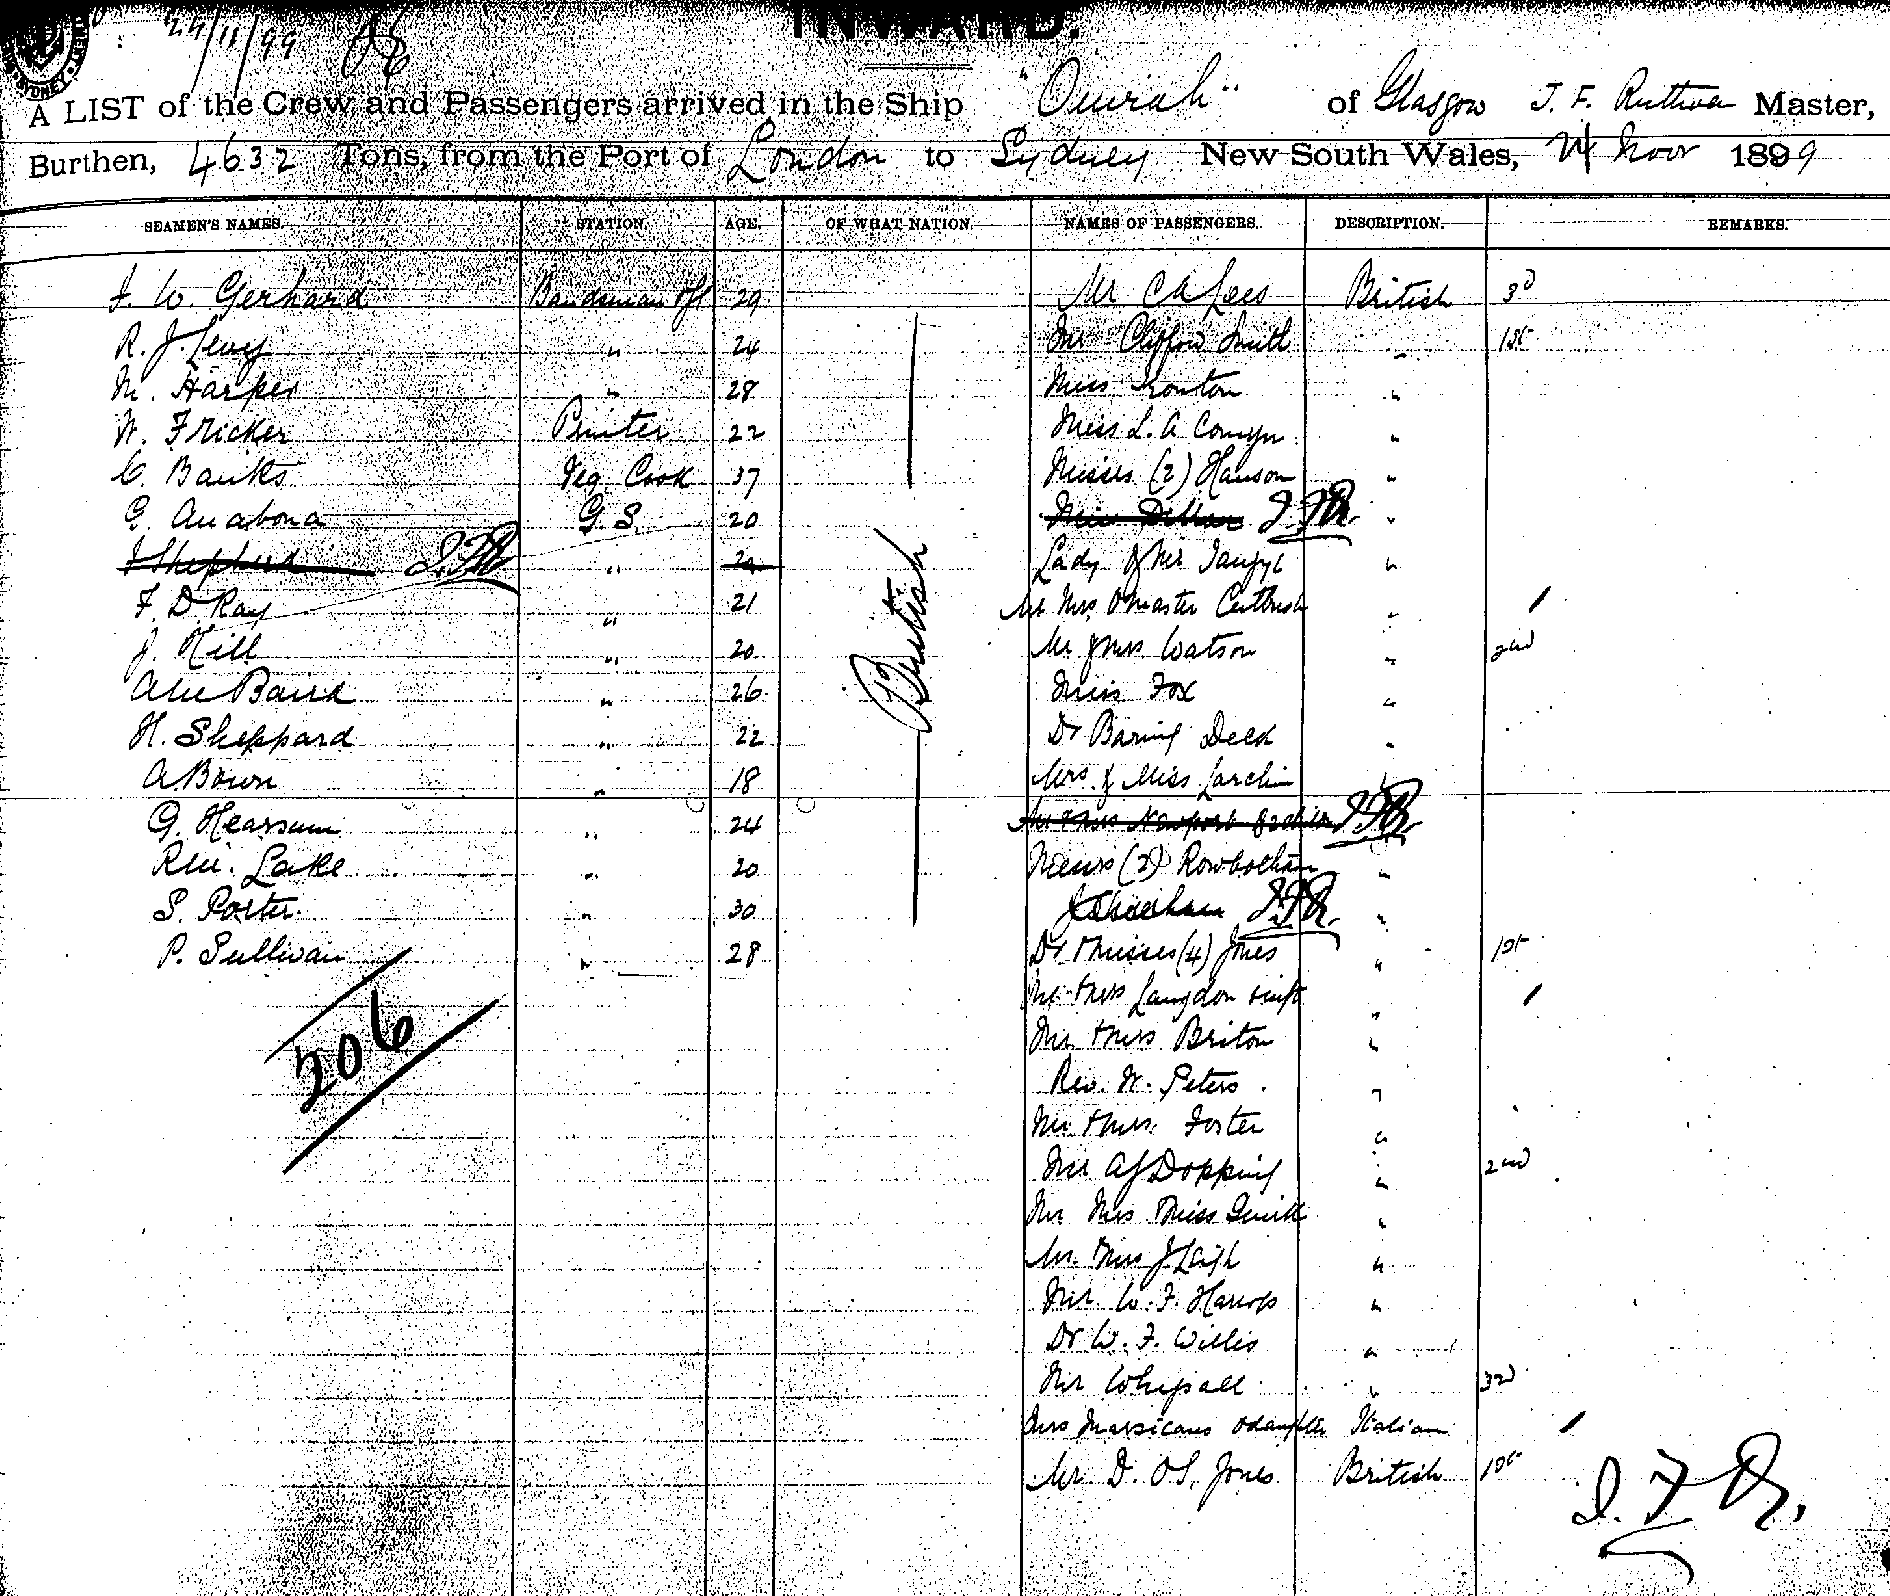 24/11/99
INWARD.
A LIST of the Crew and Passengers arrived in the Ship "Omrah" of Glasgow J. F. Ruthven Master,
Burthen, 4632 Tons, from the Port of London to Sydney New South Wales, 24 Novr 1899
SEAMEN'S NAMES. STATION. AGE. OF WHAT NATION. NAMES OF PASSENGERS. DESCRIPTION. REMARKS.
J. W. Gerhard Bandsman 29 Mr C A Lees British 3d
R. J. Levy " 24 Mr Clifford Smith " 1st
M. Harper " 28 Miss Ironton "
W. Fricker Printer 22 Miss L. A Comyn "
C. Banks Veg Cook 37 Misses (2) Hanson "
G. Anabona G. S. 20 Miss J.F.R. "
J Shepherd J.F.R. " Lady & Mr "
F. D. Ray " 21 Mr Mrs & Master Cutbush "
J. Hill " 20 Mr & Mrs Watson " 2nd
Alec Baird " 26 Miss Fox "
British
H. Sheppard " 22 Dr Baring Deck "
A Bown " 18 Mrs & Miss Larchin
G. Hearsum " 24 Newport J.F.R.
Lake " 20 Messrs (2) Rowbotham "
S. Porter " 30 J.F.R. "
P. Sullivan " 28 Dr & Misses (4) Jones " 1st
206
Mr & Mrs Langdon "
Mr & Mrs Briton "
Rev. W. Peters "
Mr & Mrs Foster "
Mr A J Dopping " 2nd
Mr Mrs & Miss Smith "
Mr & Mrs J Leigh "
Mr W. F. Harrop "
Dr W. F. Willis "
Mr Whepall " 3rd
Mrs Marsicano & daughter Italian
Mr D. O S. Jones British 1st
J. F. R.